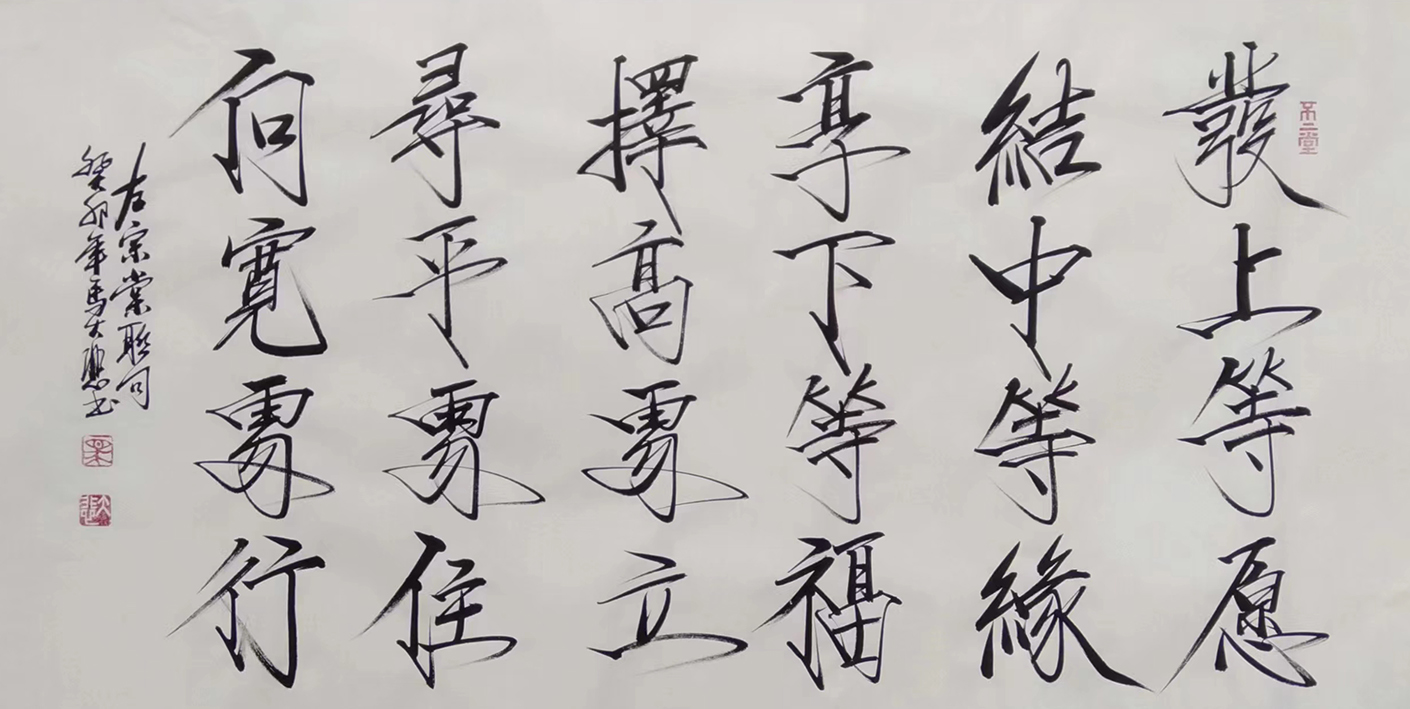 不二堂
發上等愿
結中等緣
享下等福
擇高處立
尋平處住
向寬處行
左宗棠联句
癸卯年馬大